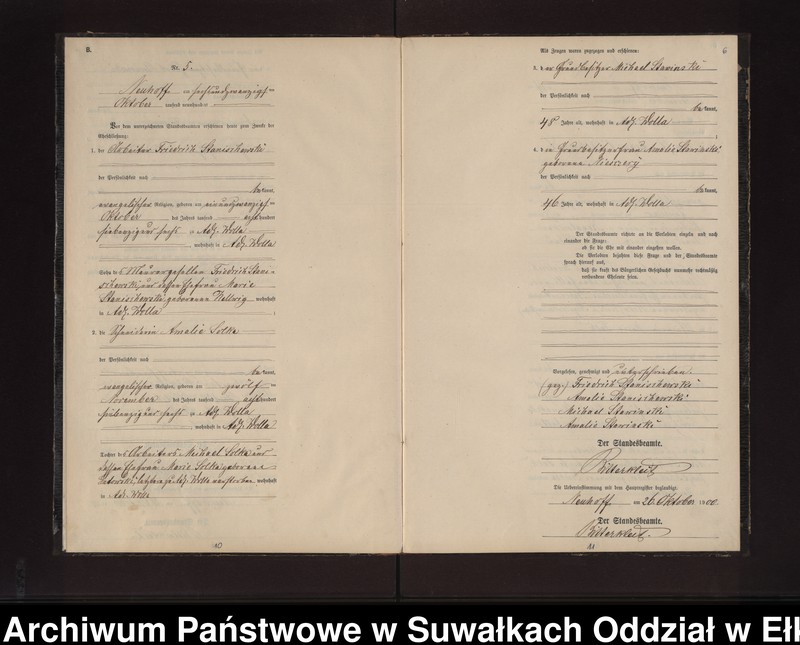 B.
Nr. 5.
Neuhoff am sechsundzwanzigsten
Oktober tausend neunhundert
Vor dem unterzeichneten Standesbeamten erschienen heute zum Zwecke der
Eheschließung:
1. der Arbeiter Friedrich Stanischewski
der Persönlichkeit nach
be kannt,
evangelischer Religion, geboren am einundzwanzigsten
Oktober des Jahres tausend acht hundert
siebenzig und sechs in Adl. Wolla
, wohnhaft in Adl. Wolla
Sohn des Maurergesellen Friedrich Stani-
schewski und dessen Ehefrau Marie
Stanischewski geborenen Hellwig wohnhaft
in Adl. Wolla
2. die Schneiderin Amalie Solka
der Persönlichkeit nach
be kannt,
evangelischer Religion, geboren am zwölften
November des Jahres tausend acht hundert
siebenzig und sechs in Adl. Wolla
, wohnhaft in Adl. Wolla
Tochter des Arbeiters Michael Solka und
dessen Ehefrau Marie Solka geborene
letztere zu Adl. Wolla verstorben wohnhaft
in Adl. Wolla
10
6
Als Zeugen waren zugezogen und erschienen:
3. der Grundbesitzer Michael Stawinski
der Persönlichkeit nach
be kannt,
48 Jahre alt, wohnhaft in Adl. Wolla
4. die Grundbesitzerfrau Amalie Stawinski
geborene
der Persönlichkeit nach
be kannt,
46 Jahre alt, wohnhaft in Adl. Wolla
Der Standesbeamte richtete an die Verlobten einzeln und nach
einander die Frage:
ob sie die Ehe mit einander eingehen wollen.
Die Verlobten bejahten diese Frage und der Standesbeamte
sprach hierauf aus,
daß sie kraft des Bürgerlichen Gesetzbuchs nunmehr rechtmäßig
verbundene Eheleute seien.
Vorgelesen, genehmigt und unterschrieben
(gez.) Friedrich Stanischewski
Amalie Stanischewski
Michael Stawinski
Amalie Stawinski
Der Standesbeamte.
Die Uebereinstimmung mit dem Hauptregister beglaubigt
Neuhoff am 26. Oktober 1900
Der Standesbeamte.
11
Archiwum Państwowe w Suwałkach Oddział w Ełk